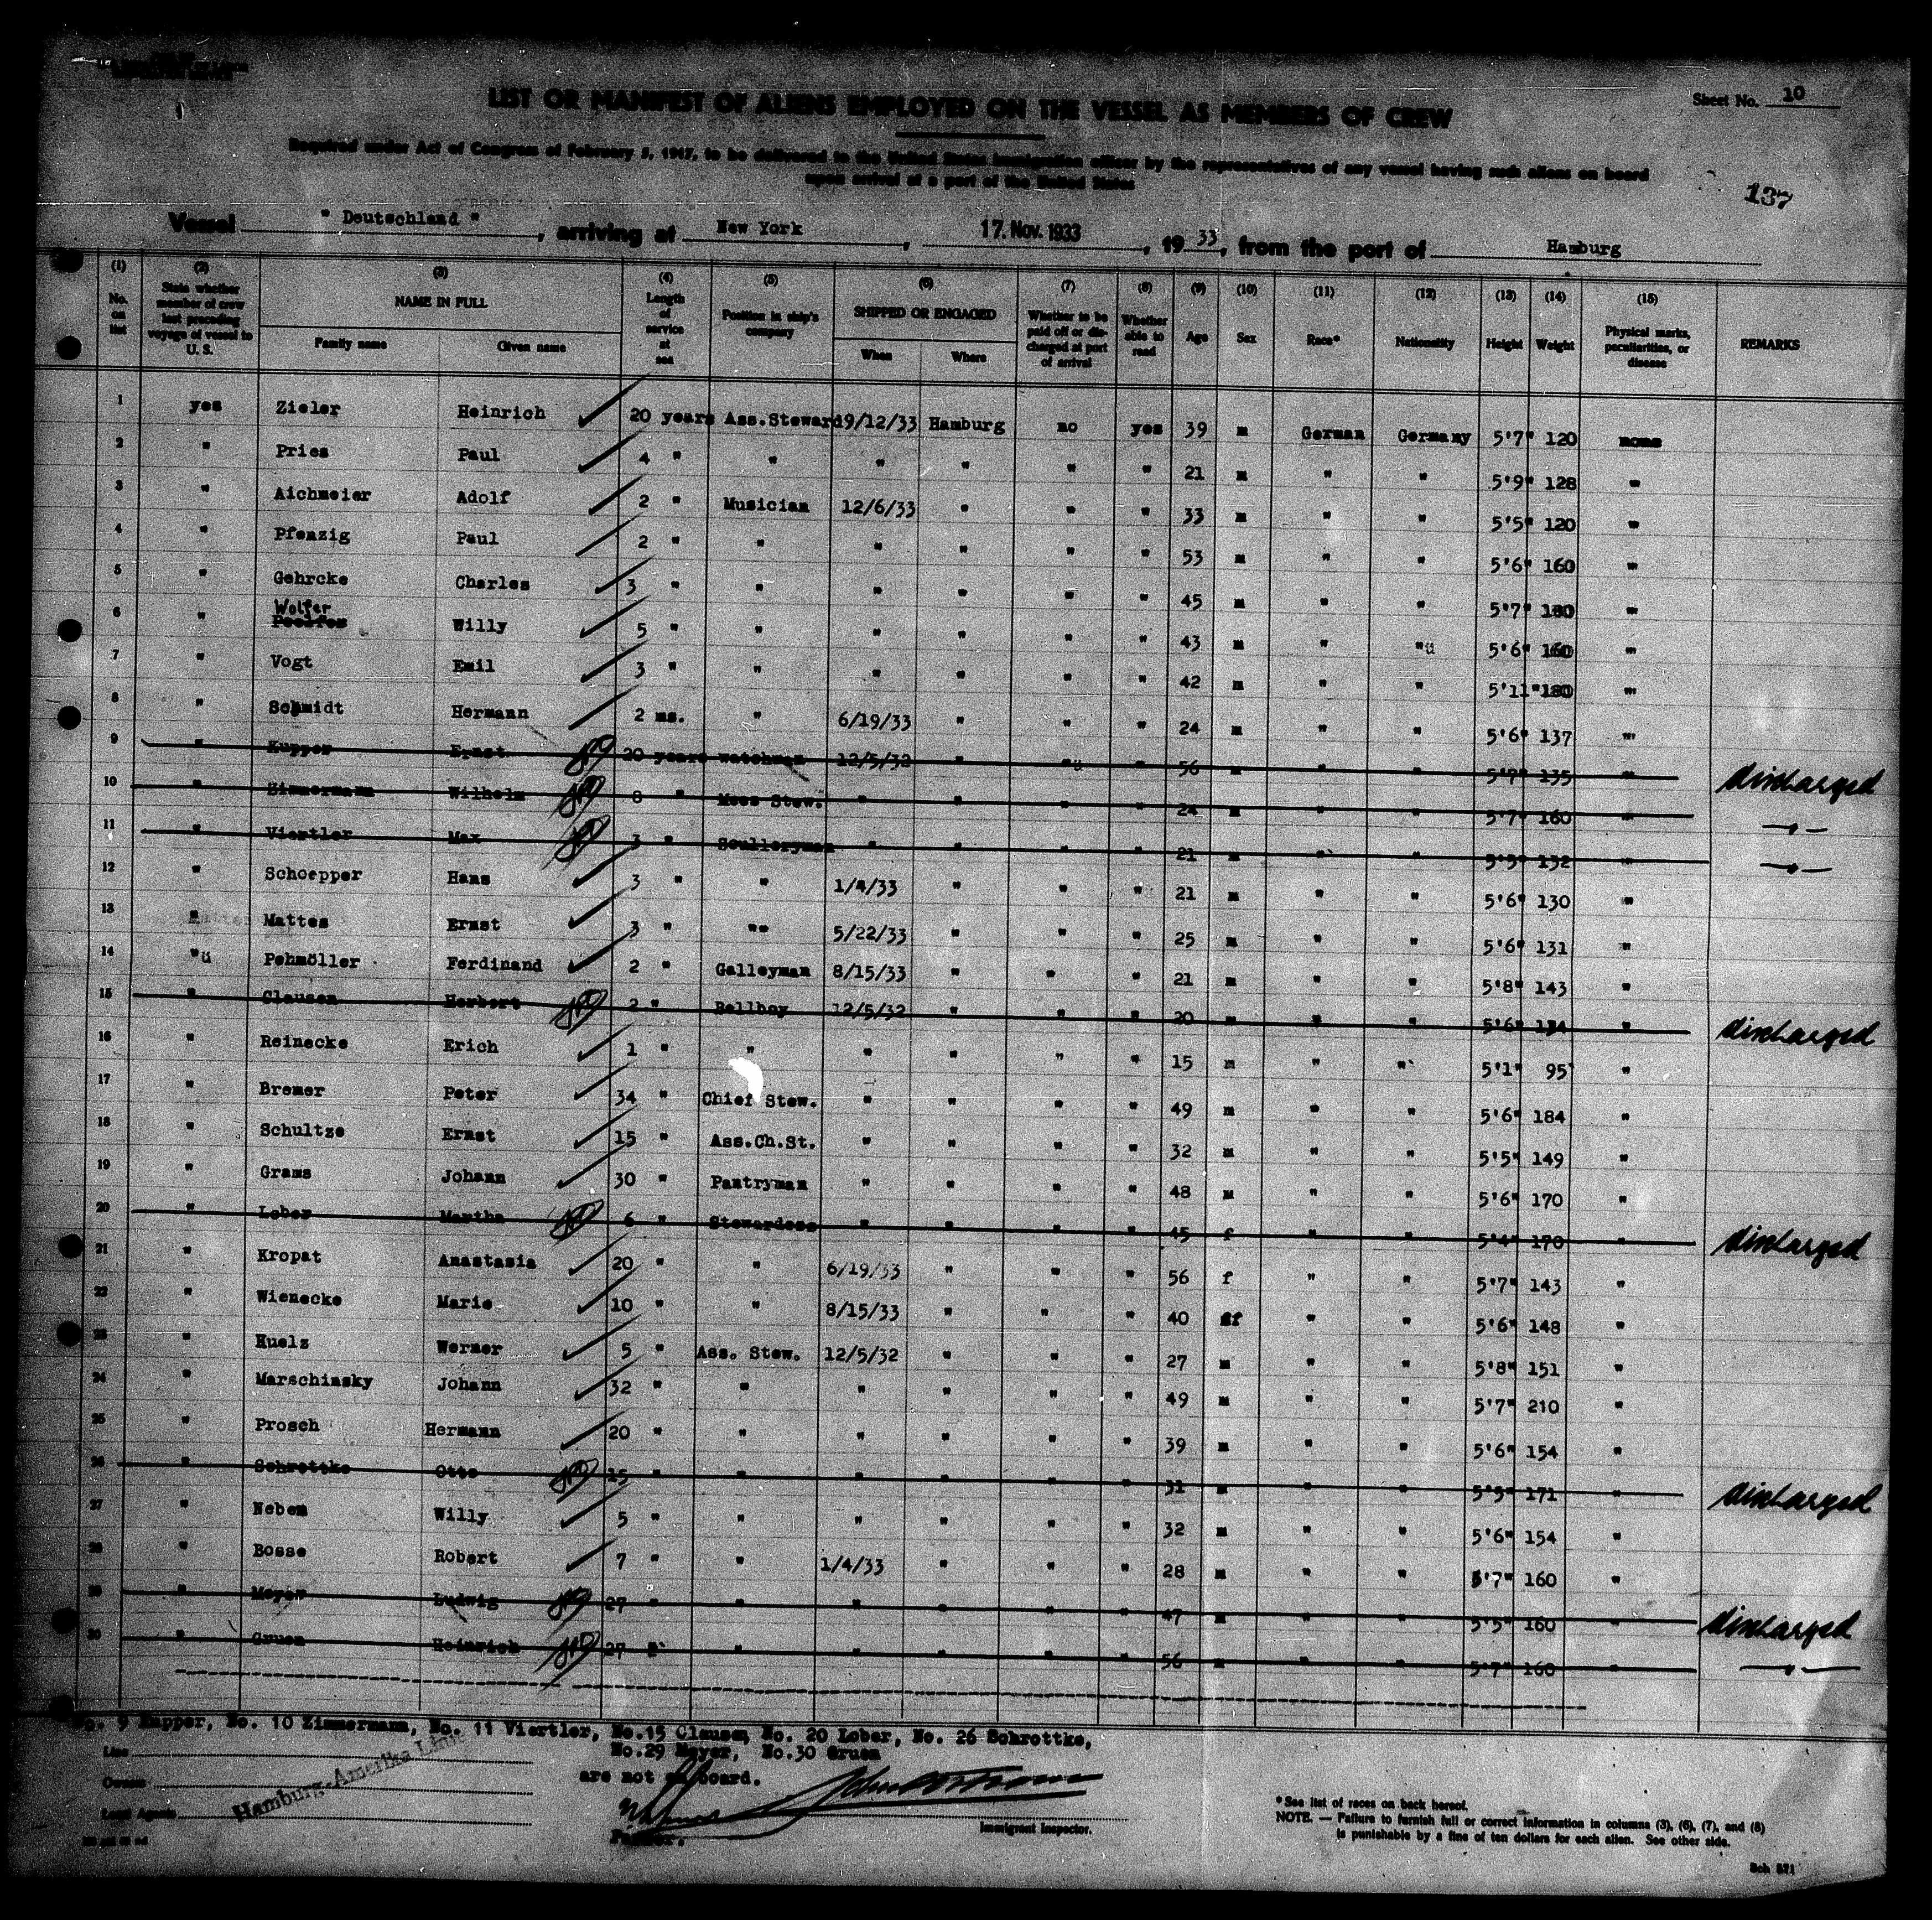 Sheet No. 10
LIST OR MANIFEST OF ALIENS EMPLOYED ON THE VESSEL AS MEMBERS OF CREW
Required under Act of Congress of February 5, 1917, to be delivered to the United States immigration officer by the representatives of any vessel having such aliens on board
upon arrival at a port of the United States
137
Vessel " Deutschland ", arriving at New York, 17. Nov. 1933, 19 33, from the port of Hamburg
(1) No. on list (2) State whether member of crew last preceding voyage of vessel to U. S. (3) NAME IN FULL Family name Given name (4) Length of service at sea (5) Position in ship's company (6) SHIPPED OR ENGAGED When Where (7) Whether to be paid off or discharged at port of arrival (8) Whether able to read (9) Age (10) Sex (11) Race* (12) Nationality (13) Height (14) Weight (15) Physical marks, peculiarities, or disease REMARKS
1 yes Zieler Heinrich 20 years Ass.Steward 9/12/33 Hamburg no yes 39 m German Germany 5'7" 120 none
2 " Pries Paul 4 " " " " " " 21 m " " 5'9" 128 "
3 " Aichmeier Adolf 2 " Musician 12/6/33 " " " 33 m " " 5'5" 120 "
4 " Pfenzig Paul 2 " " " " " " 53 m " " 5'6" 160 "
5 " Gehrcke Charles 3 " " " " " " 45 m " " 5'7" "
6 " Wolfer Willy 5 " " " " " " 43 m " "ü 5'6" 160 "
7 " Vogt Emil 3 " " " " " " 42 m " " 5'11" 180 "
8 " Schmidt Hermann 2 ms. " 6/19/33 " " " 24 m " " 5'6" 137 "
9 " Kupper Ernst 20 years watchman 12/5/32 " "ü 56 m " " 135 " discharged
10 " Zimmermann Wilhelm 8 " Mess Stew. " " " " 24 m " " 5'7" 160 " —"—
11 " Viertler Max 3 " Sculleryman " " " " 21 m " " 5'5" 132 " —"—
12 " Schoepper Hans 3 " " 1/4/33 " " " 21 m " " 5'6" 130 "
13 " Mattes Ernst 3 " "" 5/22/33 " " " 25 m " " 5'6" 131 "
14 "ü Pehmöller Ferdinand 2 " Galleyman 8/15/33 " " " 21 m " " 5'8" 143 "
15 " Clausen Herbert 2 " Bellboy 12/5/32 " " " 20 m " " 5'6" 134 " discharged
16 " Reinecke Erich 1 " " " " " " 15 m " " 5'1" 95 "
17 " Bremer Peter 34 " Chief Stew. " " " " 49 m " " 5'6" 184 "
18 " Schultze Ernst 15 " Ass.Ch.St. " " " " 32 m " " 5'5" 149 "
19 " Grams Johann 30 " Pantryman " " " " 48 m " " 5'6" 170 "
20 " Lober Martha 6 " Stewardess " " " " 45 f " " 5'4" 170 " discharged
21 " Kropat Anastasia 20 " " 6/19/33 " " " 56 f " " 5'7" 143 "
22 " Wienecke Marie 10 " " 8/15/33 " " " 40 f " " 5'6" 148 "
23 " Huelz Werner 5 " Ass. Stew. 12/5/32 " " " 27 m " " 5'8" 151 "
24 " Marschinsky Johann 32 " " " " " " 49 m " " 5'7" 210 "
25 " Prosch Hermann 20 " " " " " " 39 m " " 5'6" 154 "
26 " Schrottke Otto 15 " " " " " " 31 m " " 5'5" 171 " discharged
27 " Neben Willy 5 " " " " " " 32 m " " 5'6" 154 "
28 " Bosse Robert 7 " " 1/4/33 " " " 28 m " " 5'7" 160 "
29 " Meyer Ludwig 27 " " " " " " 47 m " " 5'5" 160 " discharged
30 " Gruen Heinrich 27 " " " " " " 56 m " " 5'7" 160 " —"—
No. 9 Kupper, No. 10 Zimmermann, No. 11 Viertler, No.15 Clausen, No. 20 Lober, No. 26 Schrottke,
No.29 Meyer, No.30 Gruen
are not on board.
Line
Owners
Local Agents
Hamburg-Amerika Linie
Immigrant Inspector.
*See list of races on back hereof.
NOTE. — Failure to furnish full or correct information in columns (3), (6), (7), and (8)
is punishable by a fine of ten dollars for each alien. See other side.
Sch 571